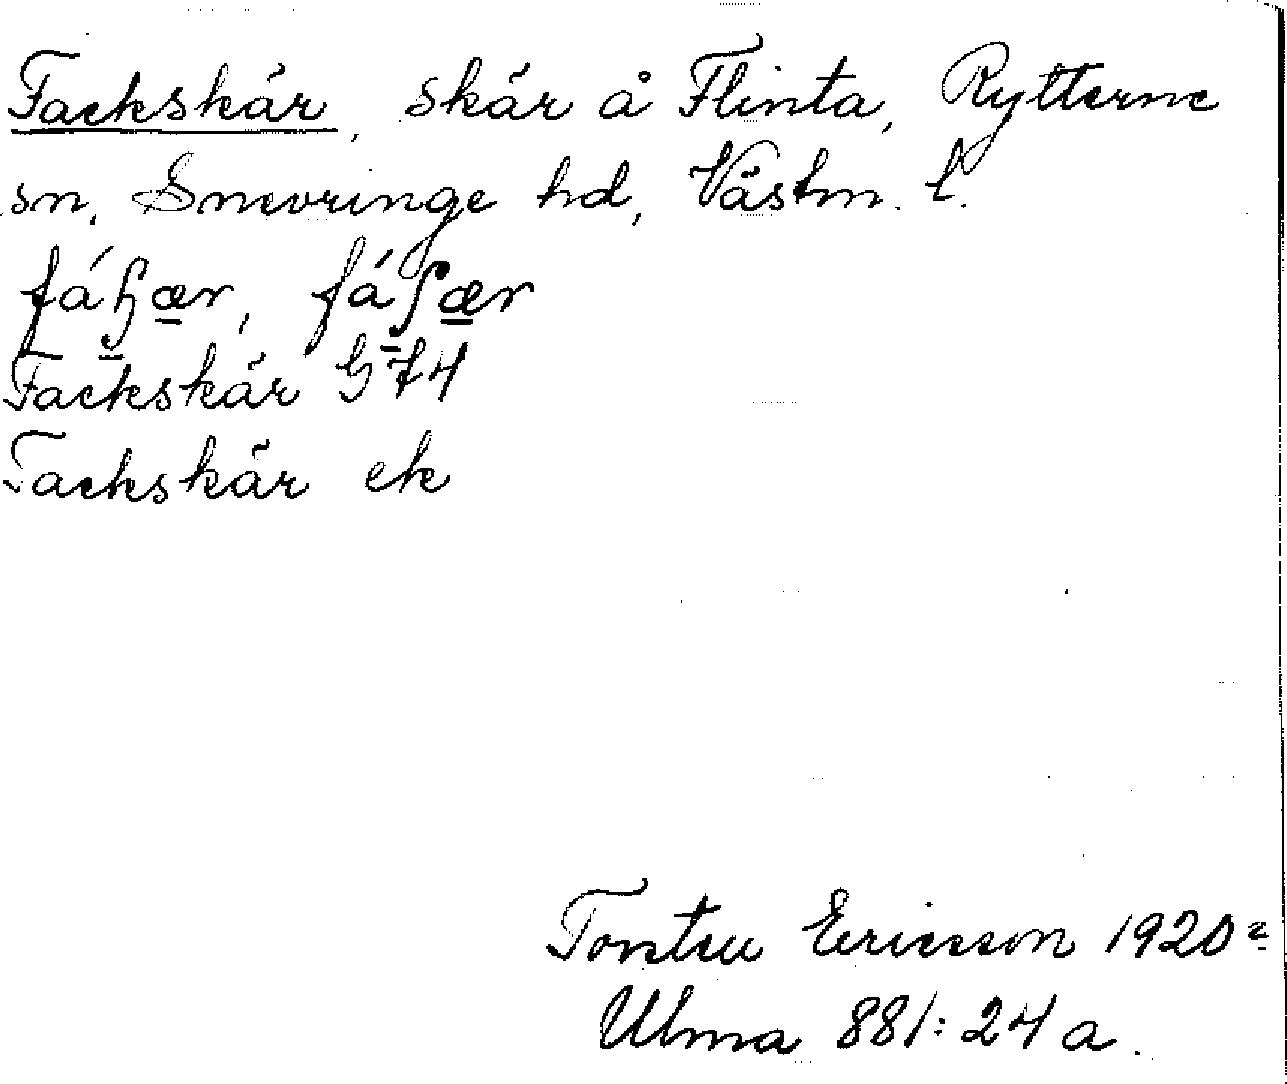 Fackskär, skär å Flinta, Rytterne
sn, Snevringe hd, Västm. l.
Fackskär G74
Tackskär ek
Torsten Ericsson 1920
Ulma 881:24 a.